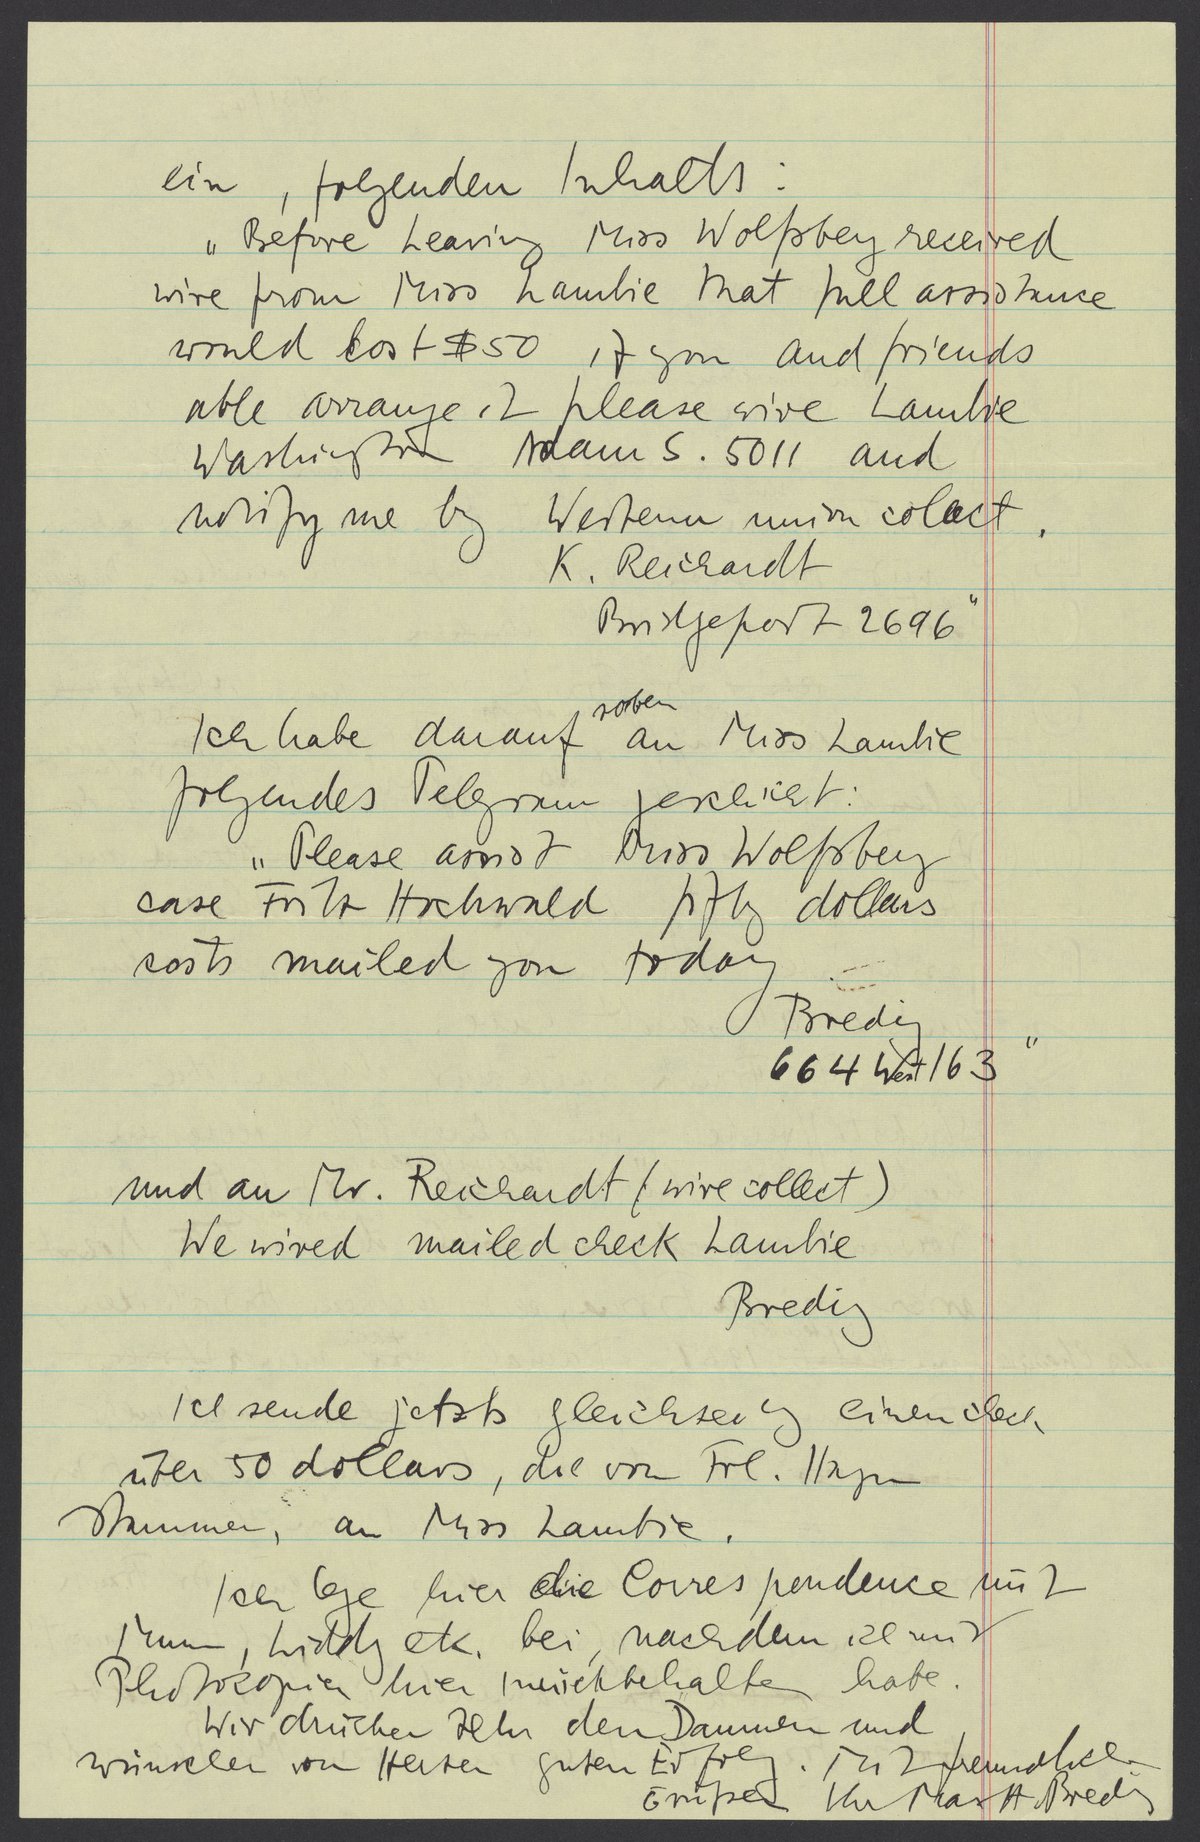 ein, folgenden Inhalts:
„Before Leaving Miss Wolfsberg received
wire from Miss Lambie that full assistance
would cost $50 if you and friends
able arrange it please wire Lambie
Washington Adams. 5011 and
notify me by Western union collect.
K. Reichardt
Bridgeport 2696"
Ich habe darauf soeben an Miss Lambie
folgendes Telegram geschickt:
„Please assist Miss Wolfsberg
case Fritz Hochwald fifty dollars
costs mailed you today
Bredig
664 West 163"
und an Mr. Reichardt (wire collect)
We wired mailed check Lambie
Bredig
Ich sende jetzt gleichzeitig einen check
über 50 dollars, die von Frl.
stammen, an Miss Lambie.
Ich lege hier die Correspondence mit
, Liddy etc. bei, nachdem ich mir
Photokopien hier zurückbehalten habe.
Wir drücken sehr den Daumen und
wünschen von Herzen guten Erfolg. Mit freundlichen
Grüßen Ihr Max A. Bredig